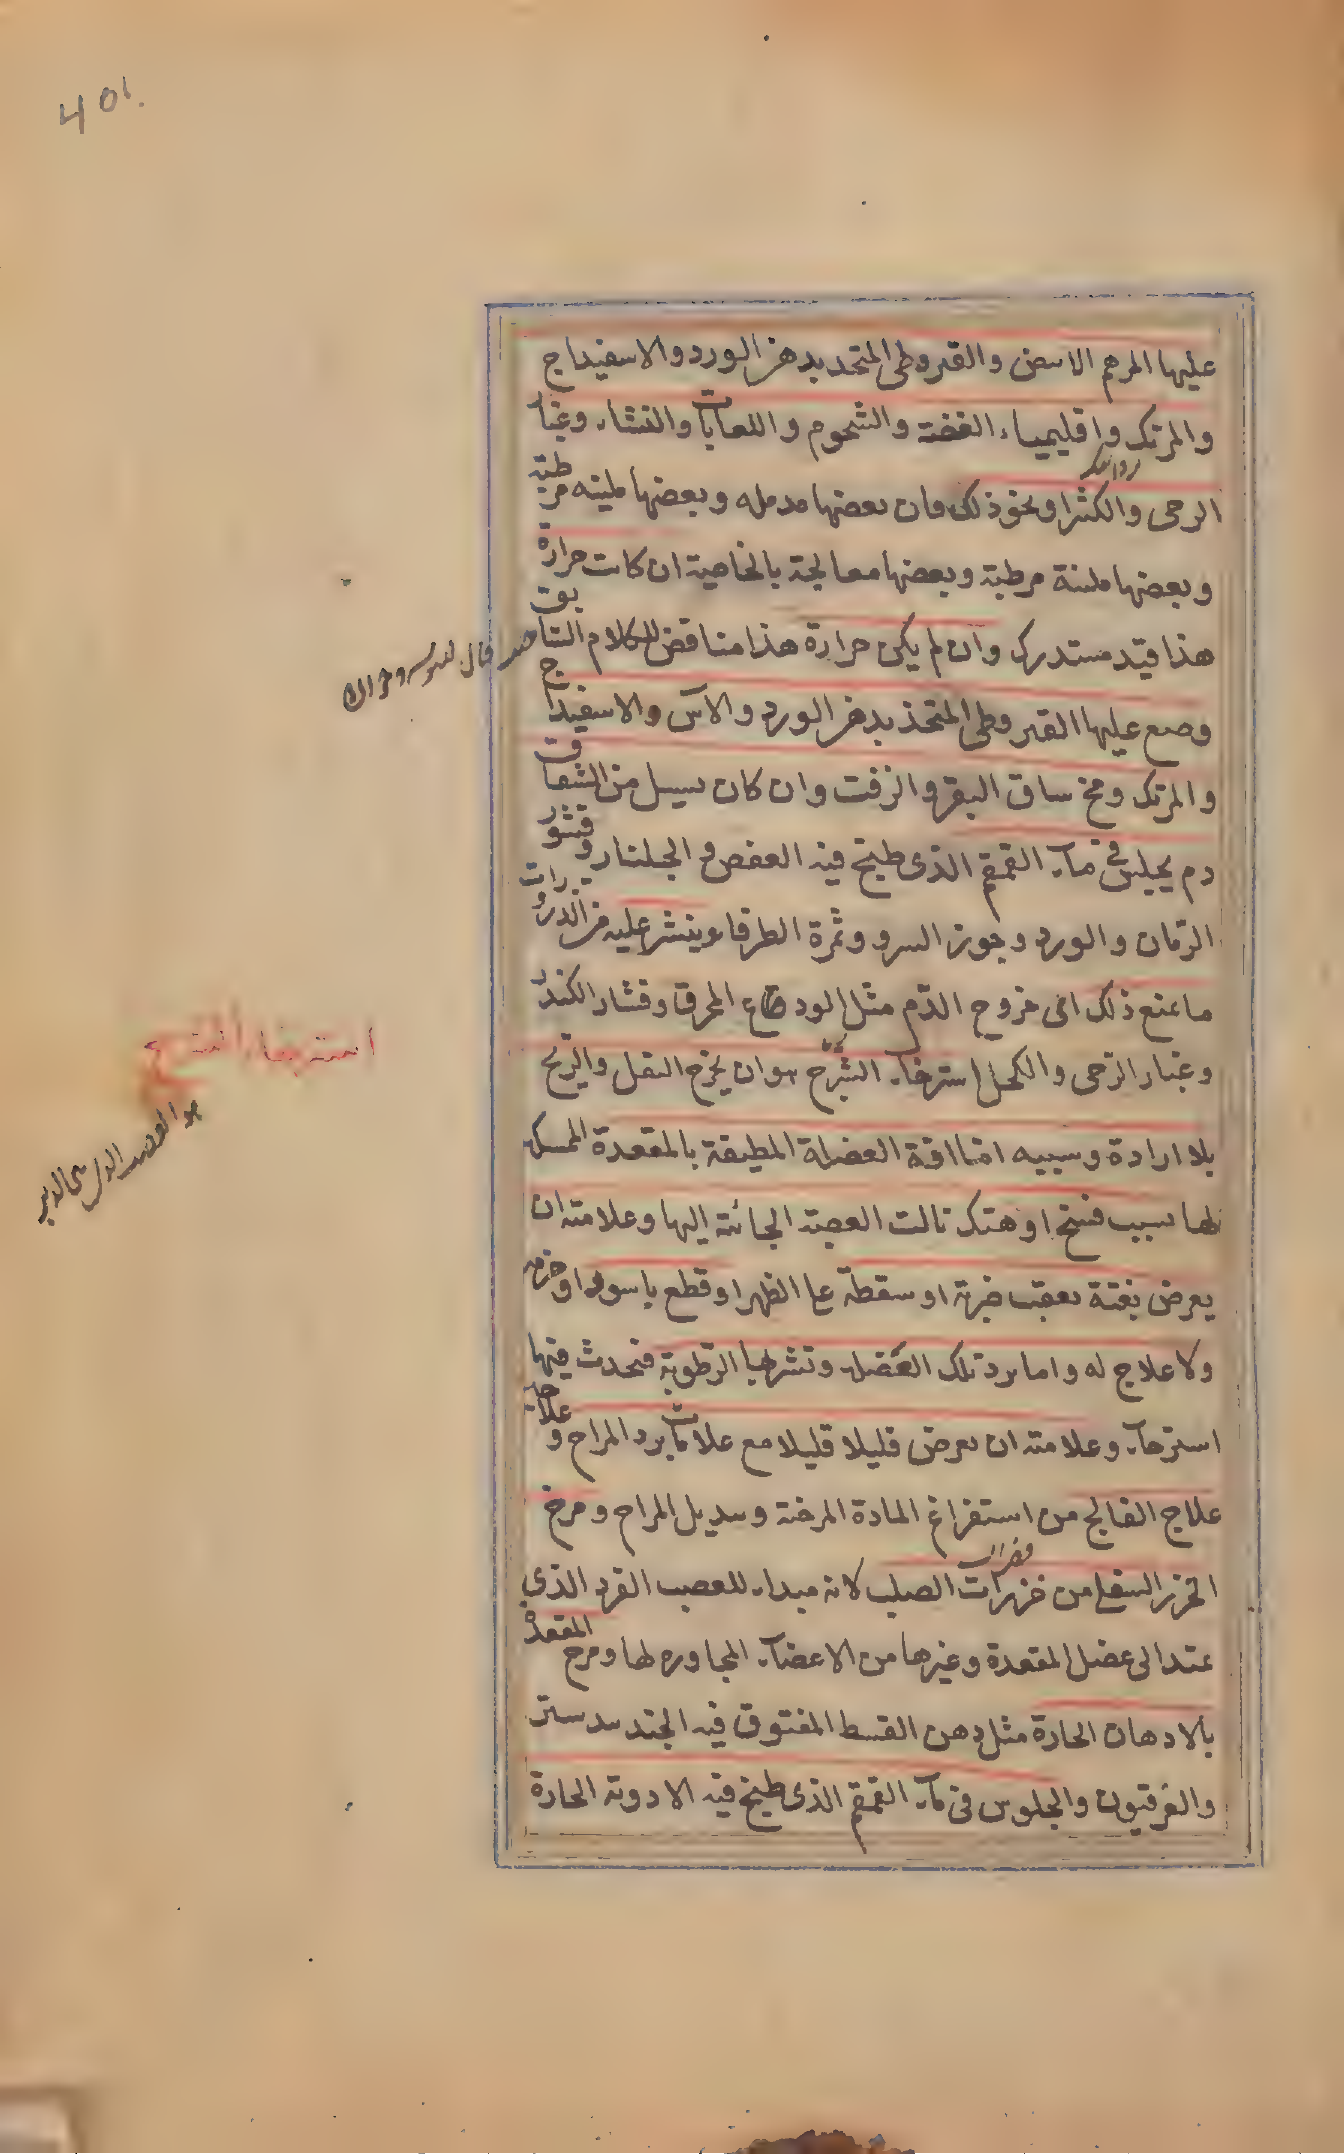 401.
عليها المرهم الابيض والقيروطى المتخذ بدهن الورد والاسفيداج
والمرتك واقليمياء الفضة والشحوم واللعابات والنشاء وغبار
الرحى والكثيرا ونحو ذلك فان بعضها مدمله وبعضها ملينه مرطبة
وبعضها ملينة مرطبة وبعضها معالجة بالخاصية ان كانت حرارة
هذا قيد مستدرك وان لم يكن حرارة هذا مناقض للكلام السابق
وضع عليها القيروطى المتخذ بدهن الورد والآس والاسفيداج
والمرتك ومخ ساق البقر والزفت وان كان يسيل من الشقاق
دم يجلس فى ماء القمقم الذى طبخ فيه العفص والجلنار وقشور
الرمان والورد وجوز السرو وثمرة الطرفاء وينثر عليه من الذرورات
ما يمنع ذلك اى خروج الدم مثل الودع المحرق وقشار الكندر
وغبار الرحى والكحل استرخاء الشرج هو ان يخرج الثفل والريح
استرخاء الشرج
بلا ارادة وسببه اما افة العضلة المطيفة بالمقعدة الممسكة
لها بسبب فسخ او هتك نالت العصبة الجائية اليها وعلامته ان
يعرض بغتة بعقب ضربة او سقطة على الظهر او قطع باسور او خزمه
ولا علاج له واما برد تلك العضلة وتشربها الرطوبة فيحدث فيها
استرخاء وعلامته ان يعرض قليلا قليلا مع علامات برد المزاج وعلاجه
علاج الفالج من استفراغ المادة المرخية وتبديل المزاج ومرخ
الخرز السفلى من خرزات الصلب لانه مبداء للعصب الفرد الذى
يمتد الى عضل المقعدة وغيرها من الاعضاء المجاورة لها ومرخ المقعدة
بالادهان الحارة مثل دهن القسط المفتوق فيه الجندبيدستر
والفرفيون والجلوس فى ماء القمقم الذى طبخ فيه الادوية الحارة